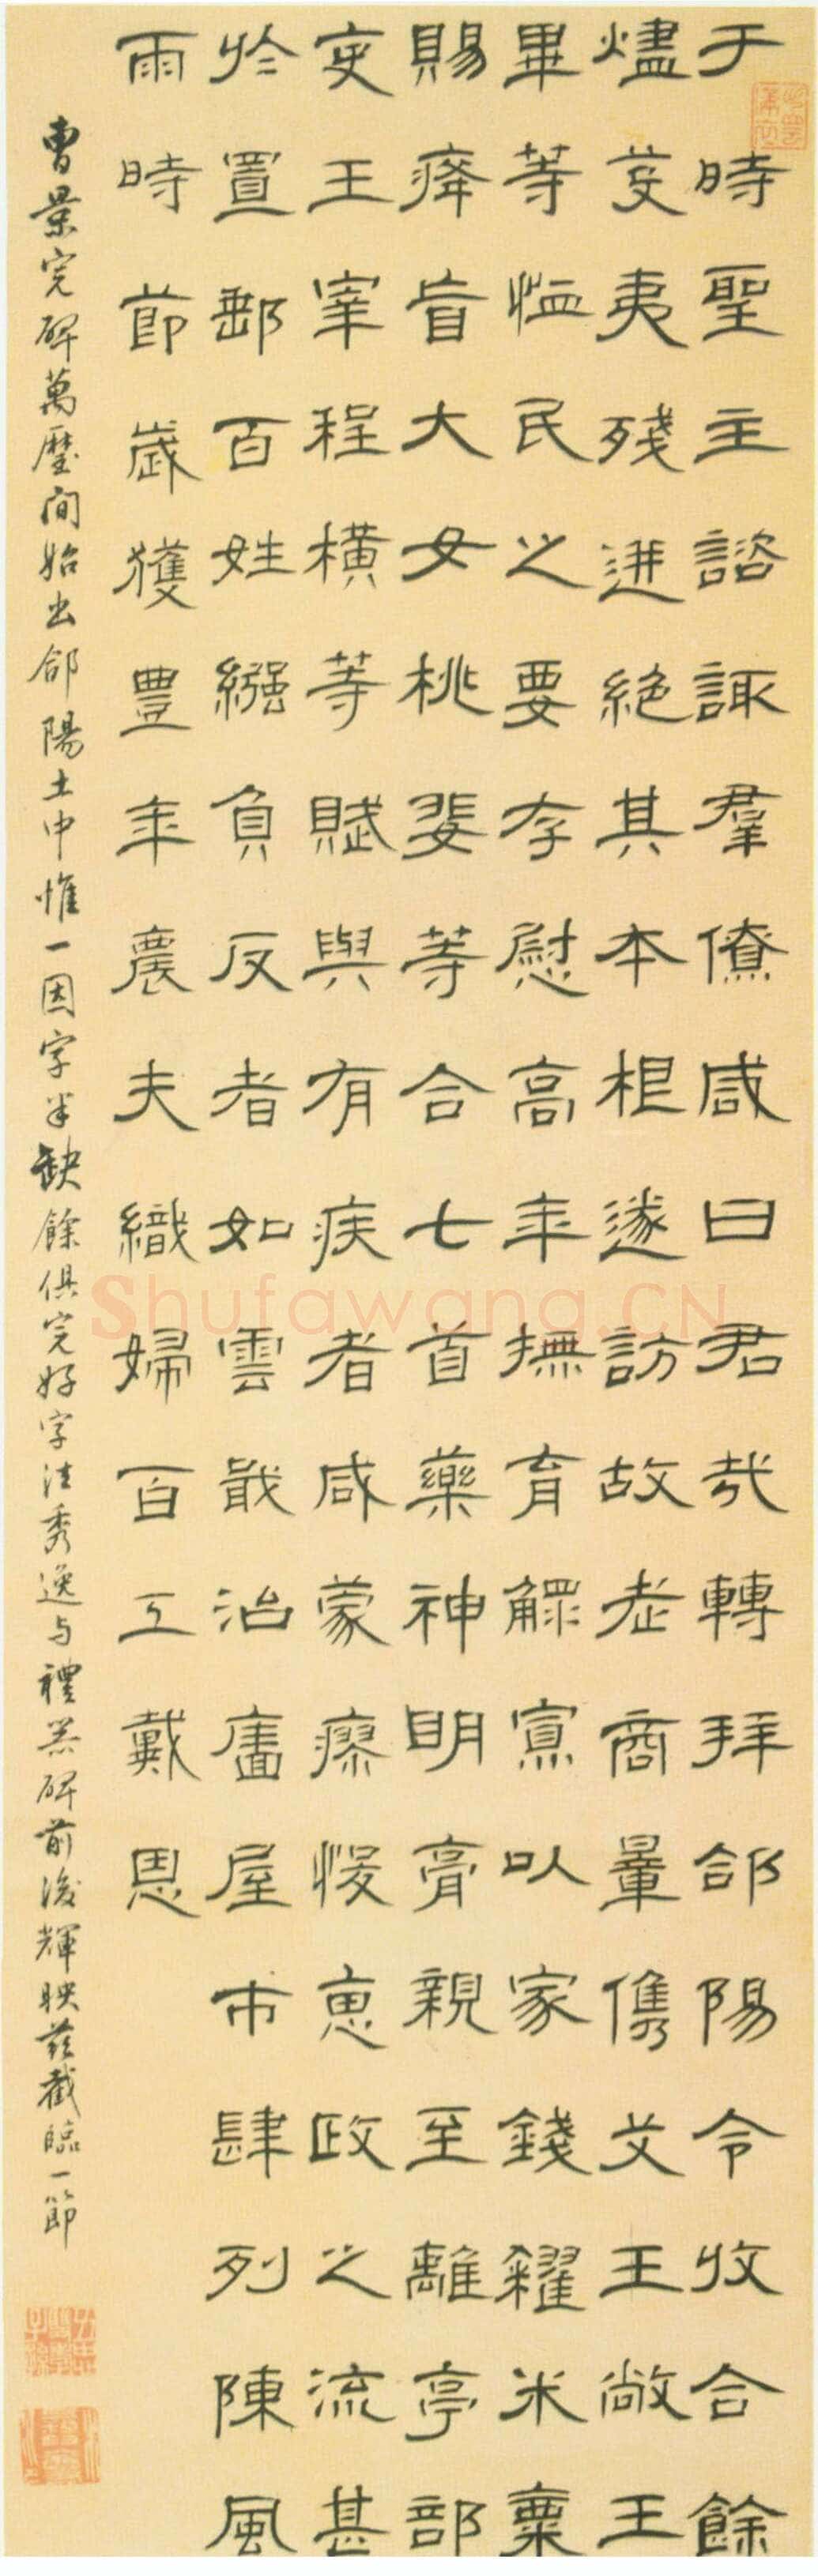 于時聖主諮諏羣僚咸曰君哉轉拜郃陽令收合餘
燼芟夷殘迸絕其本根遂訪故老商量儁艾王敞王
畢等恤民之要存慰高年撫育鰥寡以家錢糴米粟
賜癃盲大女桃婓等合七首藥神明膏親至離亭部
吏王宰程橫等賦與有疾者咸蒙瘳悛惠政之流甚
於置郵百姓繈負反者如雲戢治廧屋市肆列陳風
雨時節歲獲豐年農夫織婦百工戴恩
曹景完碑萬曆間始出郃陽土中惟一因字半缺餘俱完好字法秀逸与禮器碑前後輝映茲截臨一節
Shufawang.CN